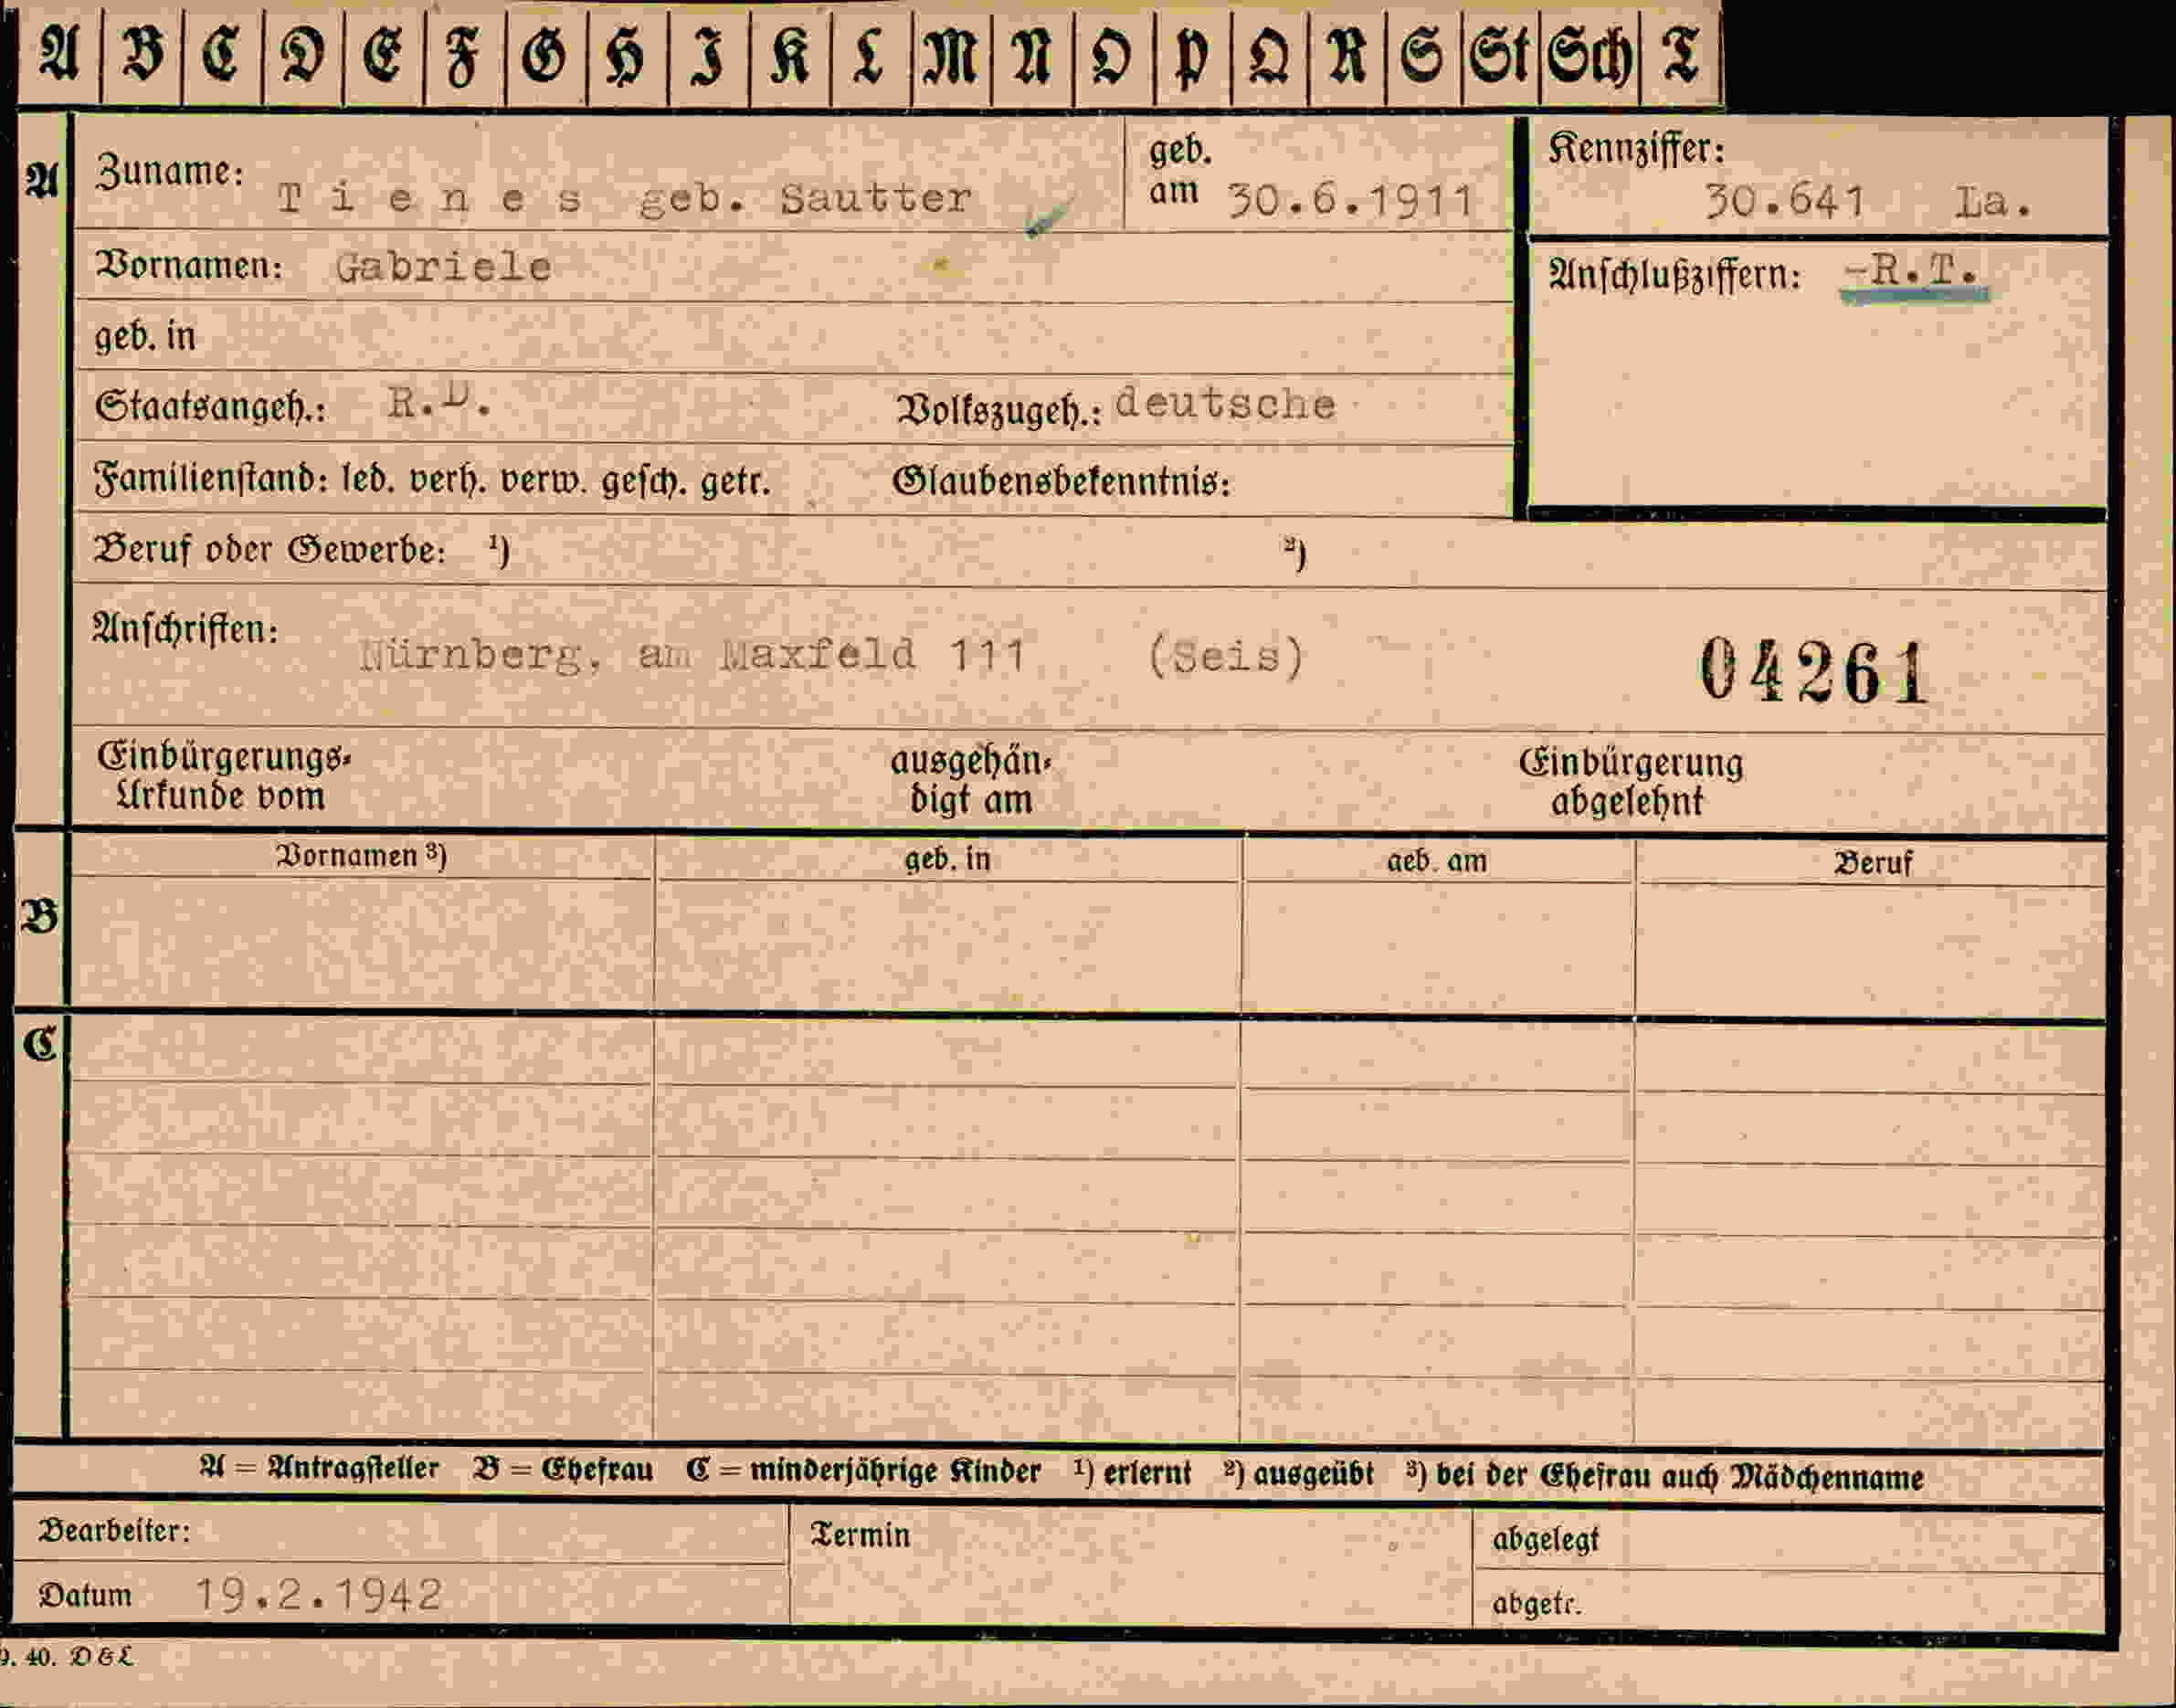 A B C D E F G H I K L M N O P Q R S St Sch T
A
Zuname: Tienes geb. Sautter
geb. am 30.6.1911
Kennziffer: 30.641 La.
Vornamen: Gabriele
Anschlußziffern: -R.T.
geb. in
Staatsangeh.: R.D. Volkszugeh.: deutsche
Familienstand: led. verh. verw. gesch. getr. Glaubensbekenntnis:
Beruf oder Gewerbe: ¹) ²)
Anschriften: Nürnberg, am Maxfeld 111 (Seis) 04261
Einbürgerungs- ausgehän- Einbürgerung
Urkunde vom digt am abgelehnt
Vornamen ³) geb. in geb. am Beruf
B
C
A = Antragsteller B = Ehefrau C = minderjährige Kinder ¹) erlernt ²) ausgeübt ³) bei der Ehefrau auch Mädchenname
Bearbeiter: Termin abgelegt
Datum 19.2.1942 abgetr.
9. 40. D & L